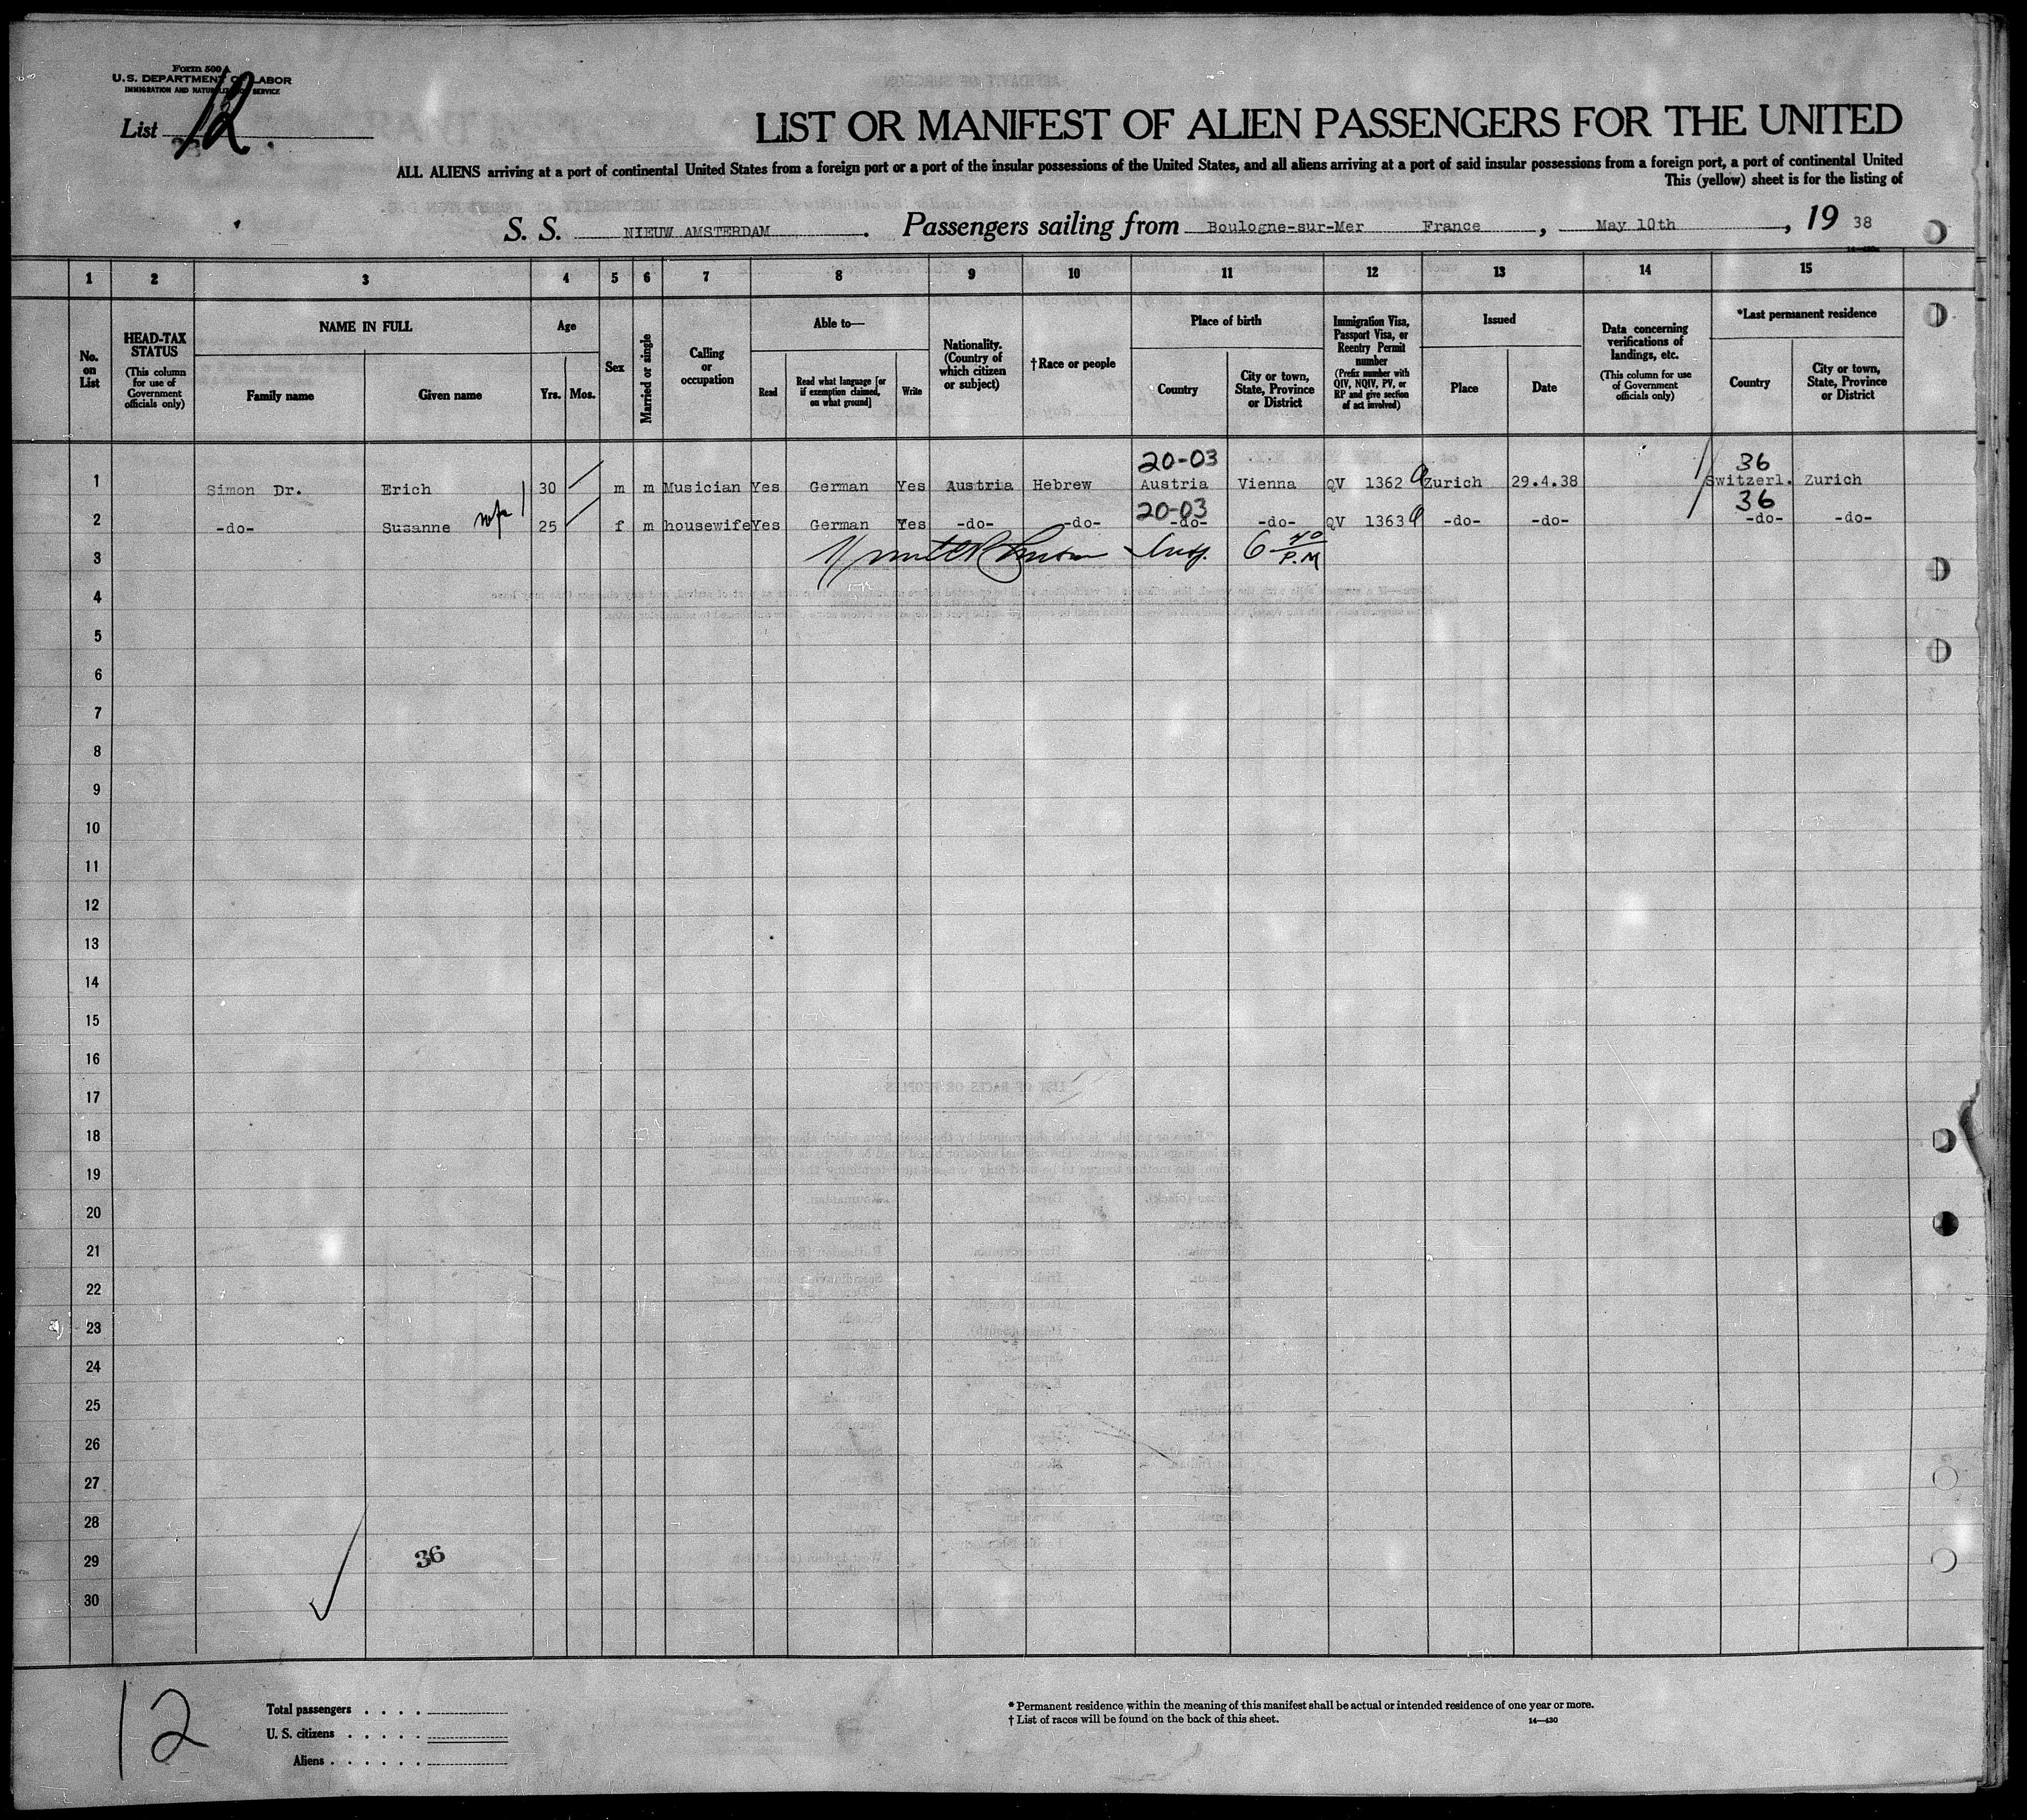 Form 500 A
U.S. DEPARTMENT OF LABOR
IMMIGRATION AND NATURALIZATION SERVICE
List 12.
LIST OR MANIFEST OF ALIEN PASSENGERS FOR THE UNITED
ALL ALIENS arriving at a port of continental United States from a foreign port or a port of the insular possessions of the United States, and all aliens arriving at a port of said insular possessions from a foreign port, a port of continental United
This (yellow) sheet is for the listing of
S. S. NIEUW AMSTERDAM. Passengers sailing from Boulogne-sur-Mer France, May 10th, 19 38
1 2 3 4 5 6 7 8 9 10 11 12 13 14 15
No. on List
HEAD-TAX STATUS (This column for use of Government officials only)
NAME IN FULL
Family name
Given name
Age
Yrs. Mos.
Sex
Married or single
Calling or occupation
Able to—
Read
Read what language [or if exemption claimed, on what ground]
Write
Nationality. (Country of which citizen or subject)
†Race or people
Place of birth
Country
City or town, State, Province or District
Immigration Visa, Passport Visa, or Reentry Permit number (Prefix number with QIV, NQIV, PV, or RP and give section of act involved)
Issued
Place
Date
Data concerning verifications of landings, etc. (This column for use of Government officials only)
*Last permanent residence
Country
City or town, State, Province or District
20-03 36
1 Simon Dr. Erich 30 m m Musician Yes German Yes Austria Hebrew Austria Vienna QV 1362 Zurich 29.4.38 Switzerl. Zurich
20-03 36
2 -do- Susanne 25 f m housewife Yes German Yes -do- -do- -do- -do- QV 1363 -do- -do- -do- -do-
3 Insp. 6 40 P.M
4
5
6
7
8
9
10
11
12
13
14
15
16
17
18
19
20
21
22
23
24
25
26
27
28
29 36
30
12
Total passengers . . . .
U. S. citizens . . . . .
Aliens . . . . . .
* Permanent residence within the meaning of this manifest shall be actual or intended residence of one year or more.
† List of races will be found on the back of this sheet. 14—430